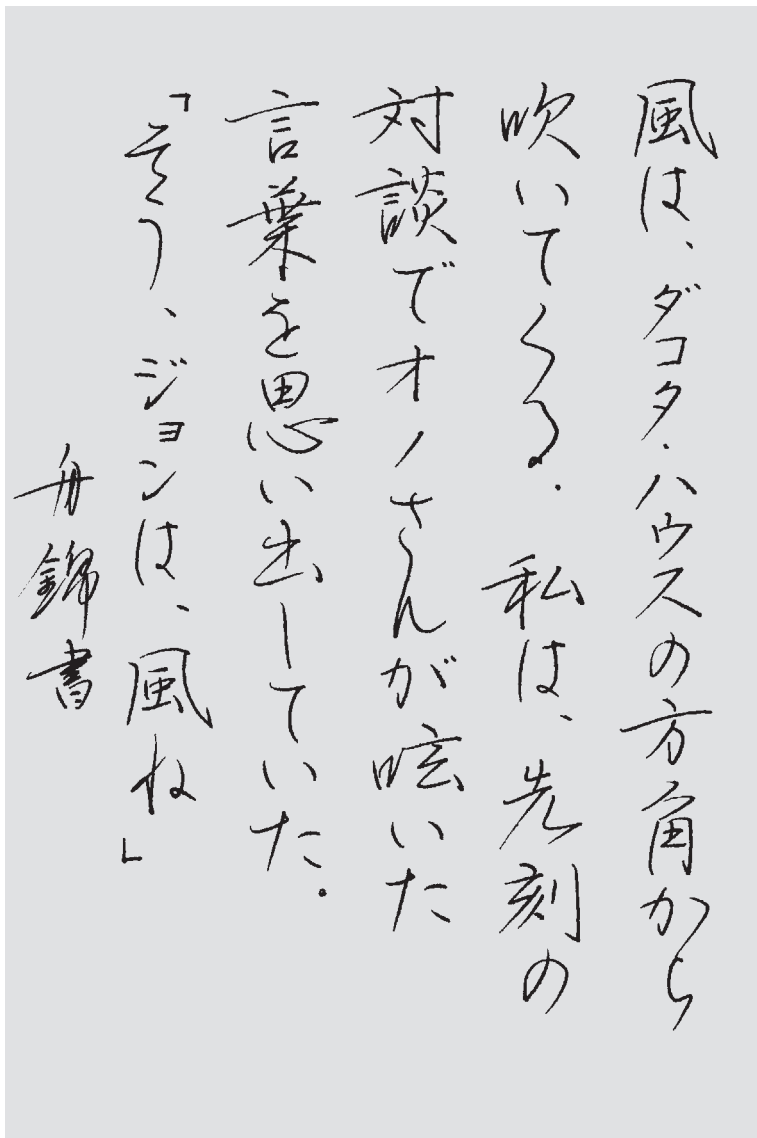 風は、ダコタ・ハウスの方角から
吹いてくる。私は、先刻の
対談でオノさんが呟いた
言葉を思い出していた。
「そう、ジョンは、風ね」
舟錦書